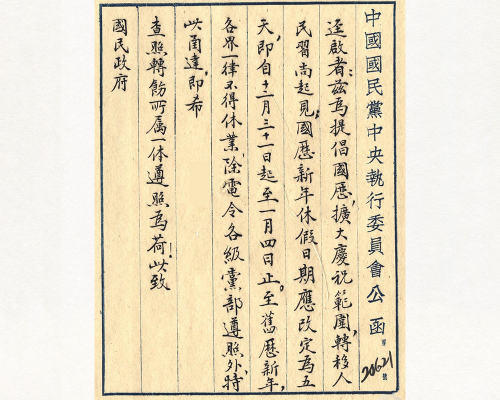 中國國民黨中央執行委員會公函
字
號
20621
逕啟者:茲為提倡國歷,擴大慶祝範圍,轉移人
民習尚起見;國歷新年休假日期應改定為五
天,即自十二月三十一日起至一月四日止。至舊歷新年,
各界一律不得休業,除電令各級黨部遵照外,特
此函達,即希
查照轉飭所屬一体遵照為荷!此致
國民政府